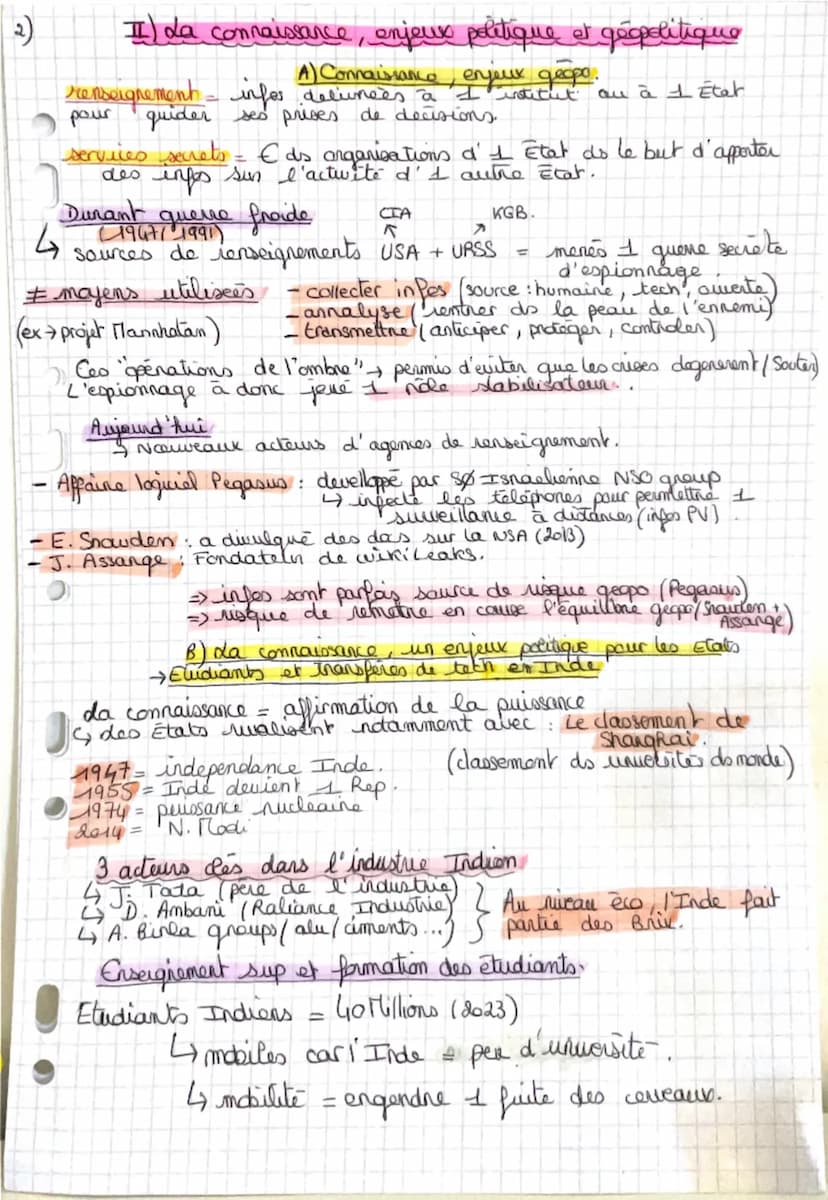 2)
II) La connaissance, enjeux politique et géopolitique
A) Connaissance, enjeux géopo.
renseignement = infos délivrées à 1 institut° ou à 1 Etat
pour guider ses prises de décisions.
services secrets = € ds organisations d'1 Etat ds le but d'apporter
des infos sur l'activité d'1 autre Etat.
Durant guerre froide
(1947/1991)
CIA
KGB.
↳ sources de renseignements USA + URSS = menés 1 guerre secrète
d'espionnage.
≠ moyens utilisées
- collecter infos (source : humaine, tech°, ouverte)
(ex → projet Mannhatan)
- annalyse (rentrer ds la peau de l'ennemi)
- transmettre (anticiper, protéger, controler)
Ces "opérations de l'ombre" → permis d'éviter que les crises dégénèrent / Soutou)
L'espionnage à donc joué 1 rôle stabilisateur.
Aujourd'hui
→ Nouveaux acteurs d'agences de renseignement.
- Affaire logiciel Pegasus : developpé par sø Israelienne NSO group
↳ infecte les téléphones pour permettre 1
surveillance à distances (infos PV).
- E. Snowden : a divulgué des das sur la NSA (2013)
- J. Assange : Fondateur de wikiLeaks.
⇒ infos sont parfois source de risque geopo (Pegasus)
⇒ risque de remettre en cause l'équilibre geopo / Snowden +
Assange)
B) La connaissance, un enjeux politique pour les Etats
→ Etudiants et transferes de tech en Inde
La connaissance = affirmation de la puissance
↳ des Etats rivalisent notamment avec : Le classement de
Shanghai.
(classement ds universités ds monde)
1947 = independance Inde.
1955 = Inde devient 1 Rep.
1974 = puissance nucléaire
2014 = N. Modi
3 acteurs clés dans l'industrie Indien
↳ J. Tata (père de l'industrie)
↳ D. Ambani (Raliance Industrie)
↳ A. Birla groups / alu / ciments...)
Au niveau éco, l'Inde fait
partie des Brix.
Enseignement sup et formation des étudiants.
Etudiants Indiens = 40 Millions (2023)
↳ mobiles car l'Inde = peu d'université.
↳ mobilité = engendre 1 fuite des cerveaux.